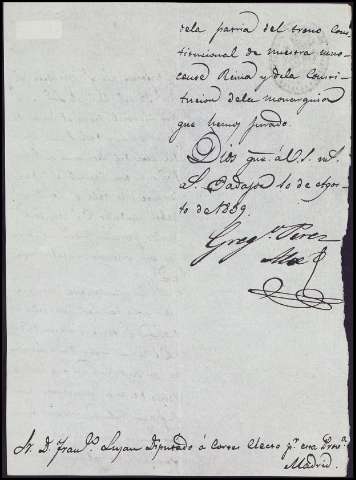 dela patria del trono Cons-
titucional de nuestra ino-
cente Reina y dela Consti-
tucion dela monarquia
que hemos jurado.
Dios gue. á V.S. m.s
a.s Badajoz 10 de Agos-
to de 1839.
Greg.o Perez
Sr. D. Fran.co Lujan Diputado á Cortes electo p.r esta Prov.a
Madrid.